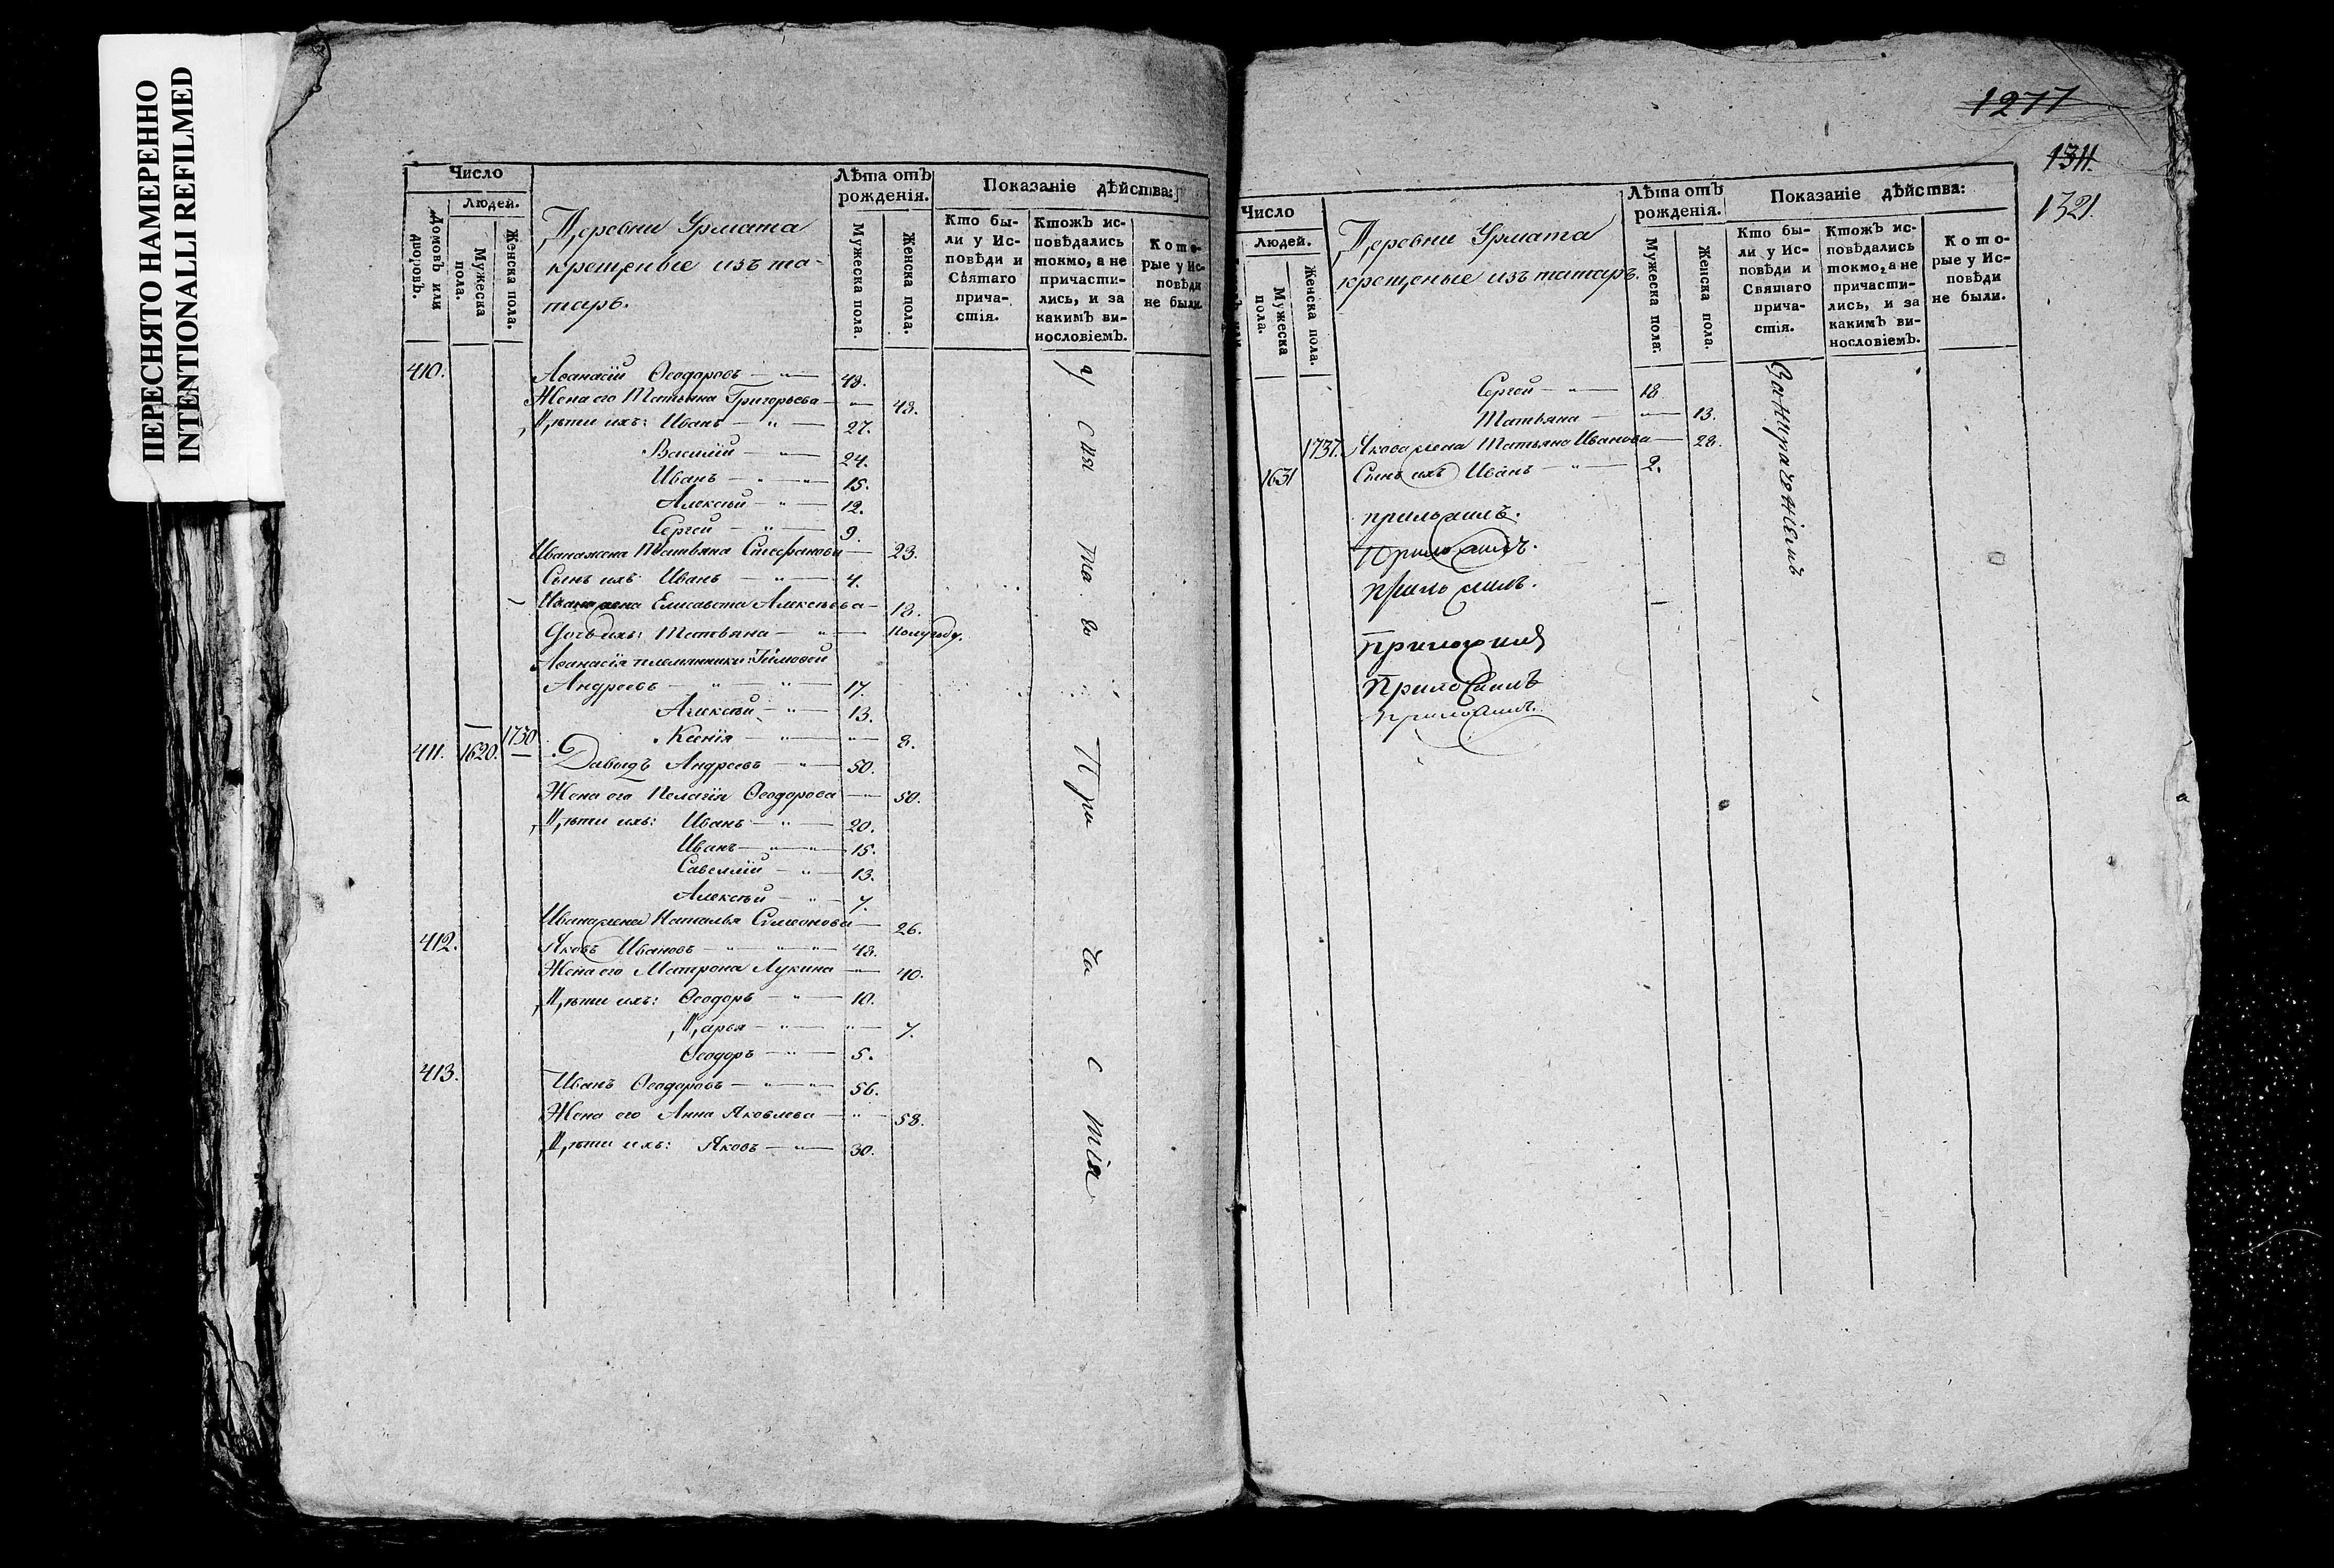 ПЕРЕСНЯТО НАМЕРЕННО
INTENTIONALLI REFILMED
Число
Людей.
Домовъ или дворовъ.
Мужеска пола.
Женска пола.
Деревни Урмата
крещеные изъ та-
таръ.
Лѣта отъ рожденія.
Мужеска пола.
Женска пола.
Показаніе дѣйства:
Кто бы-
ли у Ис-
повѣди и
Святаго
прича-
стія.
Ктожъ ис-
повѣдались
токмо, а не
причасти-
лись, и за
какимъ ви-
нословіемъ.
Кото-
рые у Ис-
повѣди
не были.
410. Аѳанасій Ѳеодоровъ — " — 48.
Жена его Татьяна Григорьева — " — 48.
Дѣти ихъ: Иванъ — " — 27.
Василій — " — 24.
Иванъ — " — " 15.
Алексѣй — " — 12.
Сергей — " — 9.
Ивана жена Татьяна Стефанова — 23.
Сынъ ихъ Иванъ — " — 4.
Ивана жена Елисавета Алексѣева — 18.
Дочь ихъ: Татьяна — " — Полугоду.
Аѳанасія племянники: Тимофей
Андреевъ — " — " — 17.
Алексѣй — " — 13.
1730 Ксенія — " — " — 8.
411. 1620. — Давыдъ Андреевъ — " — 50.
Жена его Пелагія Ѳеодорова — " — 50.
Дѣти ихъ: Иванъ — " — 20.
Иванъ — " — " 15.
Савеллій — " — 13.
Алексѣй — " — 7.
Ивана жена Наталья Симеонова — 26.
412. Яковъ Ивановъ — " — " — " 48.
Жена его Матрона Лукина — " — 40.
Дѣти ихъ: Ѳеодоръ — " — 10.
Дарья — " — " — 7.
Ѳеодоръ — " — 5.
413. Иванъ Ѳеодоровъ — " — " 56.
Жена его Анна Яковлева — " — 58.
Дѣти ихъ: Яковъ — " — 30.
У Свя та го При ча с тія
1277
1311.
1321.
Число
Людей.
Мужеска пола.
Женска пола.
Деревни Урмата
крещеные изъ татаръ.
Лѣта отъ рожденія.
Мужеска пола.
Женска пола.
Показаніе дѣйства:
Кто бы-
ли у Ис-
повѣди и
Святаго
прича-
стія.
Ктожъ ис-
повѣдались
токмо, а не
причасти-
лись, и за
какимъ ви-
нословіемъ.
Кото-
рые у Ис-
повѣди
не были.
Сергей — " — 18
Татьяна — " — 13.
1737. Якова жена Татьяна Иванова — 28.
1631 Сынъ ихъ Иванъ — " — 2.
приложилъ.
Приложилъ.
приложилъ.
Приложилъ
Приложилъ
приложилъ.